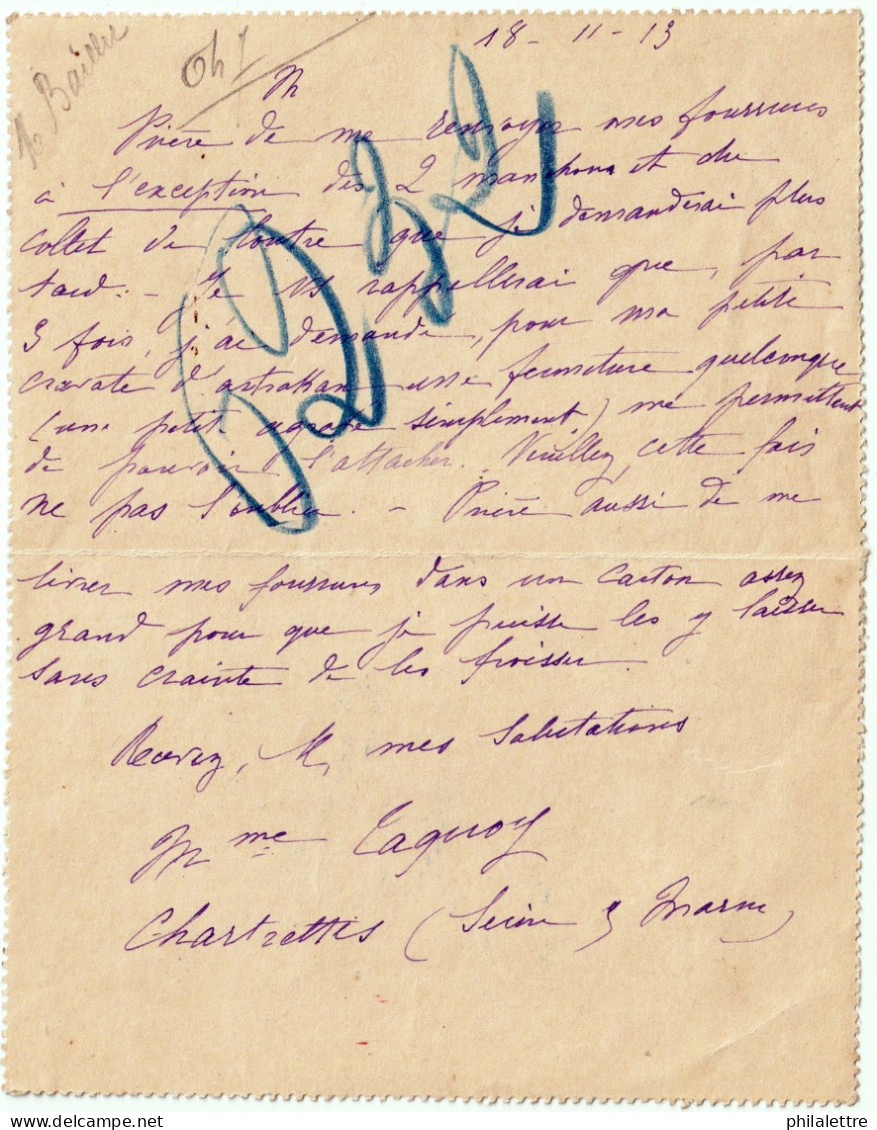 18 - 11 - 13
M
Prière de me renvoyer mes fourrures
à l'exception des 2 manchons et du
collet de loutre que je demanderai plus
tard. - Je vs rappellerai que, par
3 fois, j'ai demandé, pour ma petite
cravate d'astrakan une fermeture quelconque
(une petit agrafe simplement) me permettant
de pouvoir l'attacher. Veuillez, cette fois
ne pas l'oublier. - Prière aussi de me
livrer mes fourrures dans un carton assez
grand pour que je puisse les y laisser
sans crainte de les froisser
Recevez, M, mes salutations
Mme
Chartrettes (Seine & Marne)
www.delcampe.net
philalettre